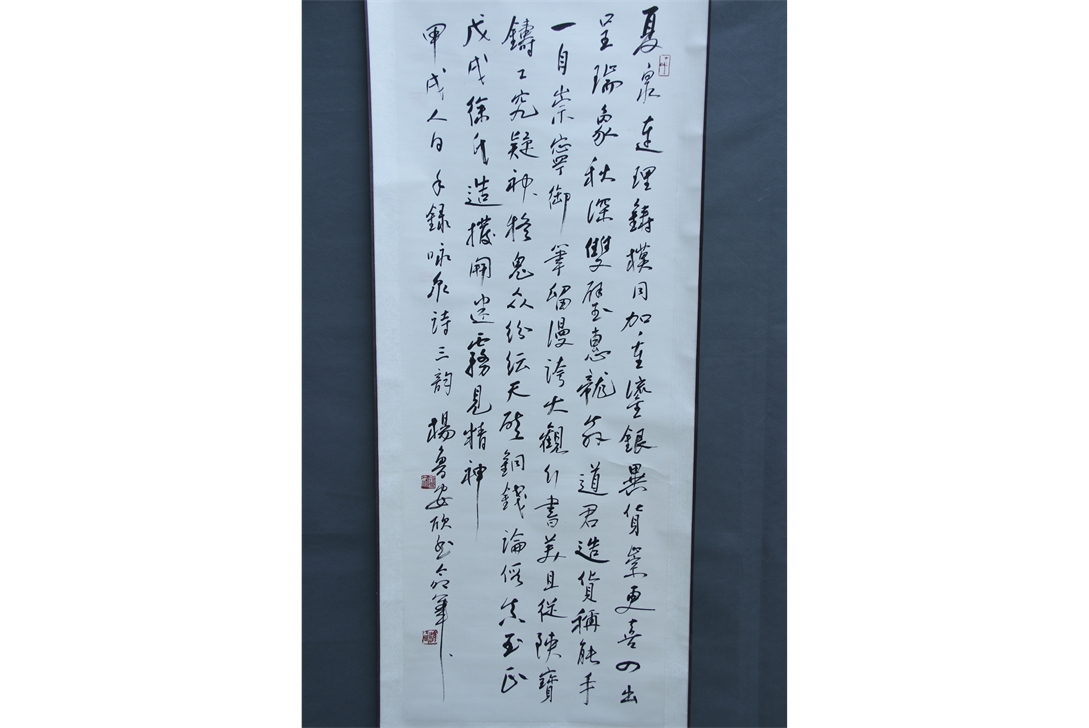 夏泉連理鑄模同加重鎏銀異貨崇更喜四出
呈瑞象秋深雙璧惠龍友道君造貨稱能手
一自崇寧御筆留漫誇大觀行書美且從陝寶
鑄工究疑神疑鬼眾紛紜天啟銅錢論假真至正
戊戌徐氏造撥開迷霧見精神
甲戌人日手錄咏泉詩三韵楊魯安欣然命筆